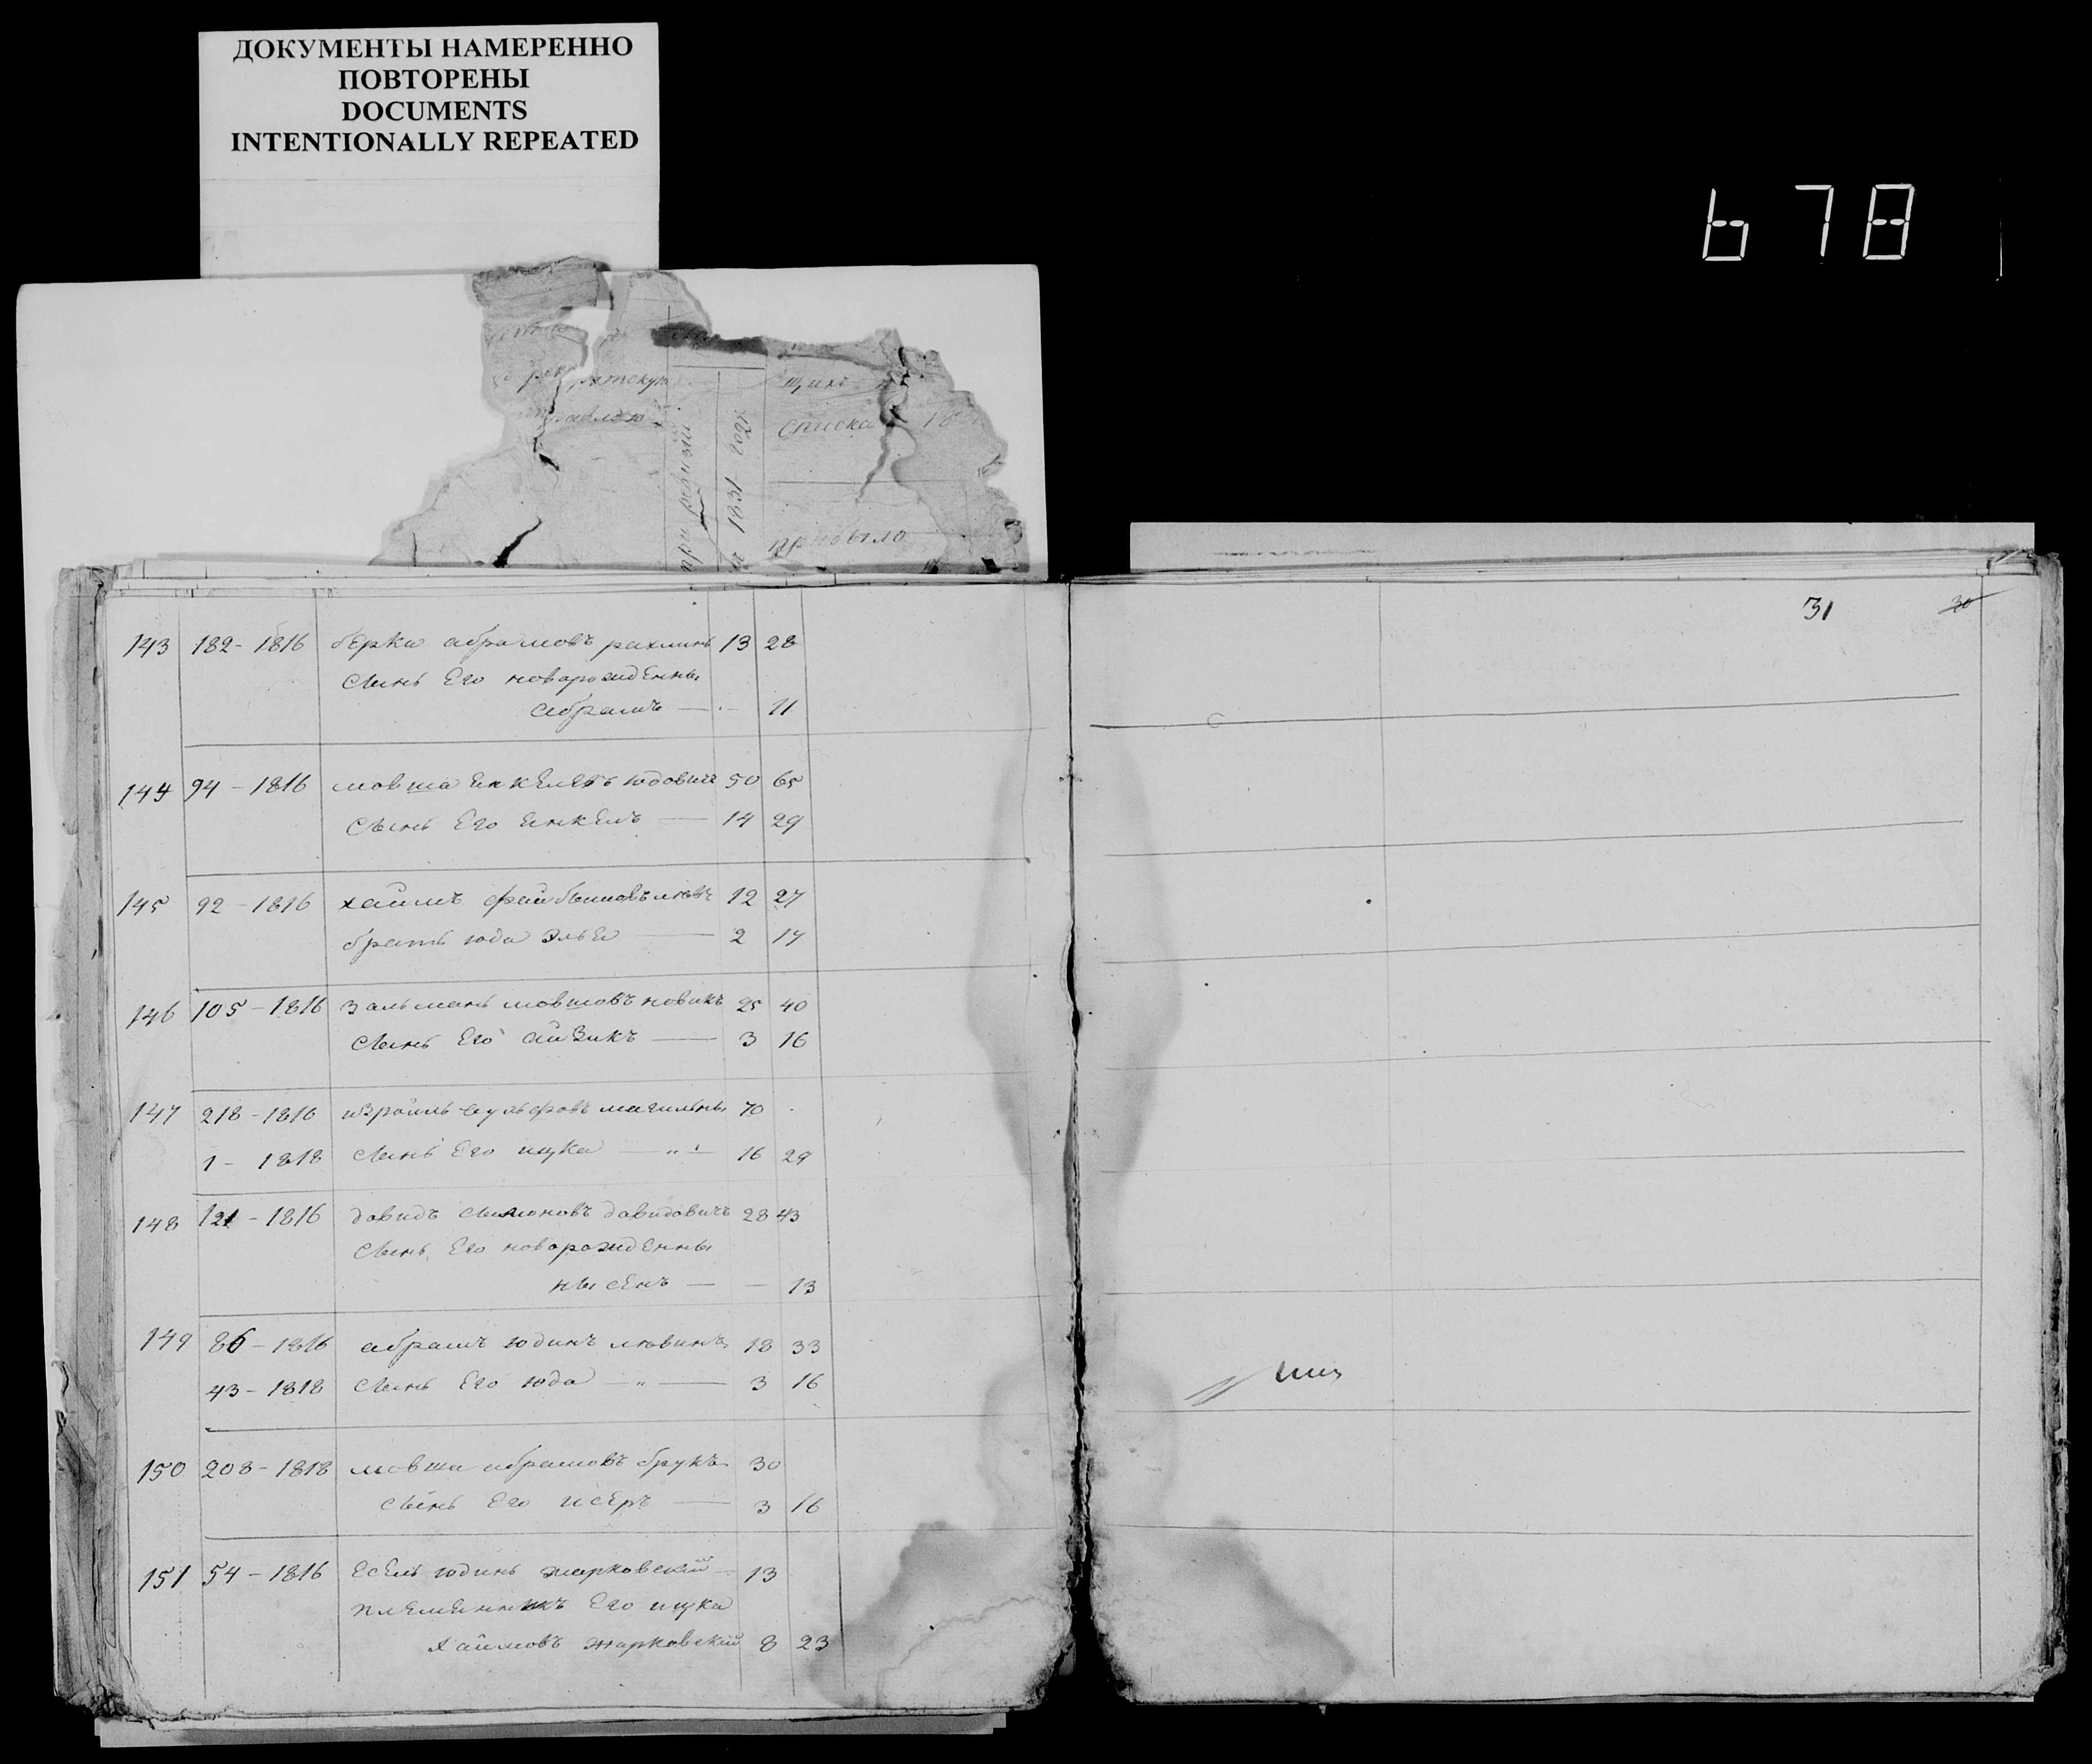 ДОКУМЕНТЫ НАМЕРЕННО
ПОВТОРЕНЫ
DOCUMENTS
INTENTIONALLY REPEATED
678
списка 18
при ревизии
1831 года
прибыло
31 30
143 182 - 1816 берка абрамовъ рахлинъ 13 28
сынъ Его новорожденны
абрамъ — 11
144 94 - 1816 мовша Енкелевъ юдовичъ 50 65
сынъ Его Енкель — 14 29
145 92 - 1816 хаимъ файбышовъ 12 27
братъ юда Элье — 2 17
146 105 - 1816 Зальманъ мовшовъ новикъ 25 40
сынъ Его айзикъ — 3 16
147 218 - 1816 израиль вульфовъ магильны 70
1 - 1818 сынъ Его ицка — 16 29
148 121 - 1816 давидъ симоновъ давидовичъ 28 43
сынъ Его новорожденны
нысенъ — — 13
149 86 - 1816 абрамъ юдинъ левинъ 18 33
43 - 1818 сынъ Его юда — „ — 3 16
150 208 - 1818 мовша абрамовъ брукъ 30
сынъ Его исеръ — 3 16
151 54 - 1816 Есель юдинъ жарковский 13
племенникъ Его ицка
хаимовъ жарковский 8 23